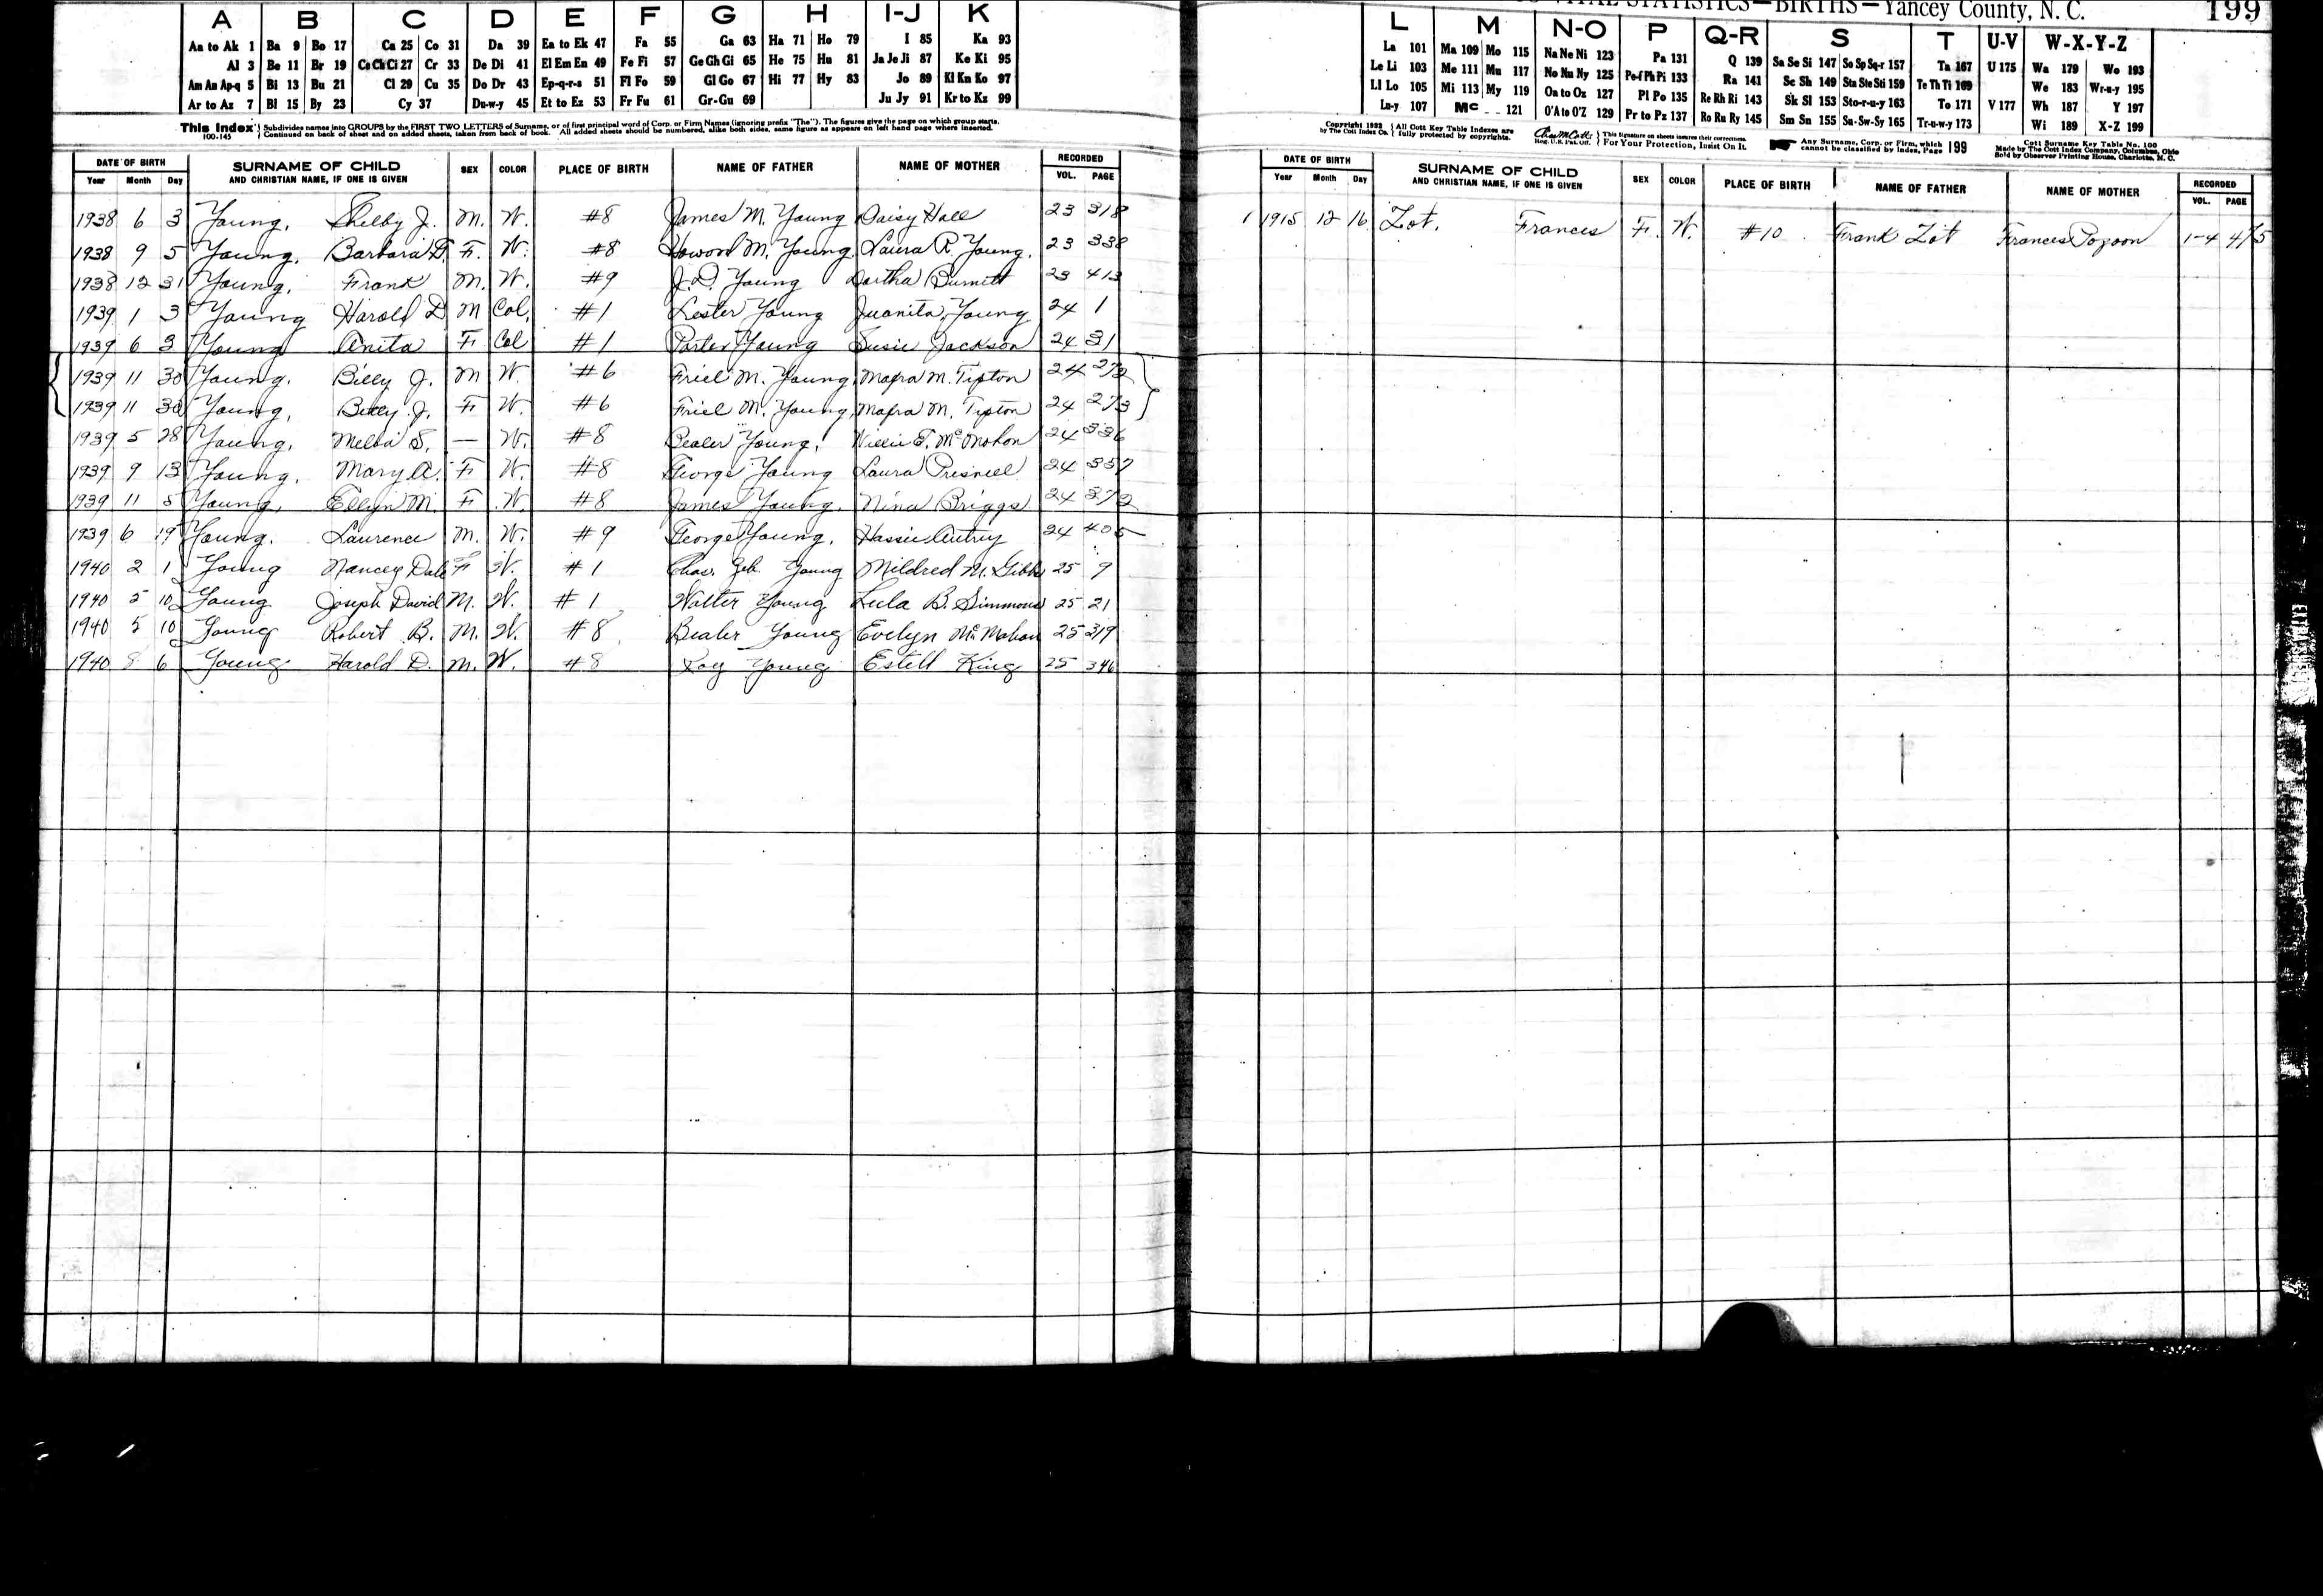 A B C D E F G H I-J K
Aa to Ak 1 Ba 9 Bo 17 Ca 25 Co 31 Da 39 Ea to Ek 47 Fa 55 Ga 63 Ha 71 Ho 79 I 85 Ka 93
Al 3 Be 11 Br 19 Ce Ch Ci 27 Cr 33 De Di 41 El Em En 49 Fe Fi 57 Ge Gh Gi 65 He 75 Hu 81 Ja Je Ji 87 Ke Ki 95
Am An Ap-q 5 Bi 13 Bu 21 Cl 29 Cu 35 Do Dr 43 Ep-q-r-s 51 Fl Fo 59 Gl Go 67 Hi 77 Hy 83 Jo 89 Kl Kn Ko 97
Ar to Az 7 Bl 15 By 23 Cy 37 Du-w-y 45 Et to Ez 53 Fr Fu 61 Gr-Gu 69 Ju Jy 91 Kr to Kz 99
This Index 100-145 Subdivides names into GROUPS by the FIRST TWO LETTERS of Surname, or of first principal word of Corp. or Firm Names (ignoring prefix "The"). The figures give the page on which group starts.
Continued on back of sheet and on added sheets, taken from back of book. All added sheets should be numbered, alike both sides, same figure as appears on left hand page where inserted.
DATE OF BIRTH SURNAME OF CHILD AND CHRISTIAN NAME, IF ONE IS GIVEN SEX COLOR PLACE OF BIRTH NAME OF FATHER NAME OF MOTHER RECORDED
Year Month Day VOL. PAGE
1938 6 3 Young, Shelby J. M. W. #8 James M. Young Daisy Hall 23 318
1938 9 5 Young, Barbara D. F. W. #8 Howard M. Young Laura R. Young. 23 338
1938 12 31 Young, Frank M. W. #9 J. D. Young Burnett 23 413
1939 1 3 Young Harold D M Col. #1 Lester Young Juanita Young 24 1
1939 6 3 Young Anita F Col #1 Porter Young Susie Jackson 24 31
1939 11 30 Young. Billy J. M W. #6 Friel M. Young Mafra M. Tipton 24 272
1939 11 30 Young, Betty J. F W. #6 Friel M. Young, Mafra M. Tipton 24 273
1939 5 28 Young, Melba S. — W. #8 Bealer Young, Willie E. McMahon 24 336
1939 9 13 Young, Mary A. F W. #8 George Young Laura Presnell 24 357
1939 11 5 Young, M. F W. #8 James Young, Nina Briggs 24 372
1939 6 19 Young. Laurence M. W. #9 George Young, Hassie Autrey 24 405
1940 2 1 Young Nancy Dale F W. #1 Chas. Young Mildred M. Gibbs 25 9
1940 5 10 Young Joseph David M. W. #1 Walter Young Lula B. Simmons 25 21
1940 5 10 Young Robert B. M. W. #8 Bealer Young Evelyn McMahan 25 319
1940 8 6 Young Harold D. M. W. #8 Roy Young Estell King 25 346
VITAL STATISTICS—BIRTHS—Yancey County, N. C. 199
L M N-O P Q-R S T U-V W-X-Y-Z
La 101 Ma 109 Mo 115 Na Ne Ni 123 Pa 131 Q 139 Sa Se Si 147 So Sp Sq-r 157 Ta 167 U 175 Wa 179 Wo 193
Le Li 103 Me 111 Mu 117 No Nu Ny 125 Pe-f Ph Pi 133 Ra 141 Sc Sh 149 Sta Ste Sti 159 Te Th Ti 169 We 183 Wr-u-y 195
Ll Lo 105 Mi 113 My 119 On to Oz 127 Pl Po 135 Re Rh Ri 143 Sk Sl 153 Sto-r-u-y 163 To 171 V 177 Wh 187 Y 197
Lu-y 107 Mc 121 O'A to O'Z 129 Pr to Pz 137 Ro Ru Ry 145 Sm Sn 155 Su-Sw-Sy 165 Tr-u-w-y 173 Wi 189 X-Z 199
Copyright 1932 by The Cott Index Co. All Cott Key Table Indexes are fully protected by copyrights. Reg. U.S. Pat. Off. This signature on sheets insures their correctness. For Your Protection, Insist On It. Any Surname, Corp. or Firm, which cannot be classified by Index, Page 199 Cott Surname Key Table No. 100
Made by The Cott Index Company, Columbus, Ohio
Sold by Observer Printing House, Charlotte, N. C.
DATE OF BIRTH SURNAME OF CHILD AND CHRISTIAN NAME, IF ONE IS GIVEN SEX COLOR PLACE OF BIRTH NAME OF FATHER NAME OF MOTHER RECORDED
Year Month Day VOL. PAGE
1 1915 12 16 Zot. Frances F. W. #10 Frank Zot Frances Pozoon 1-4 475